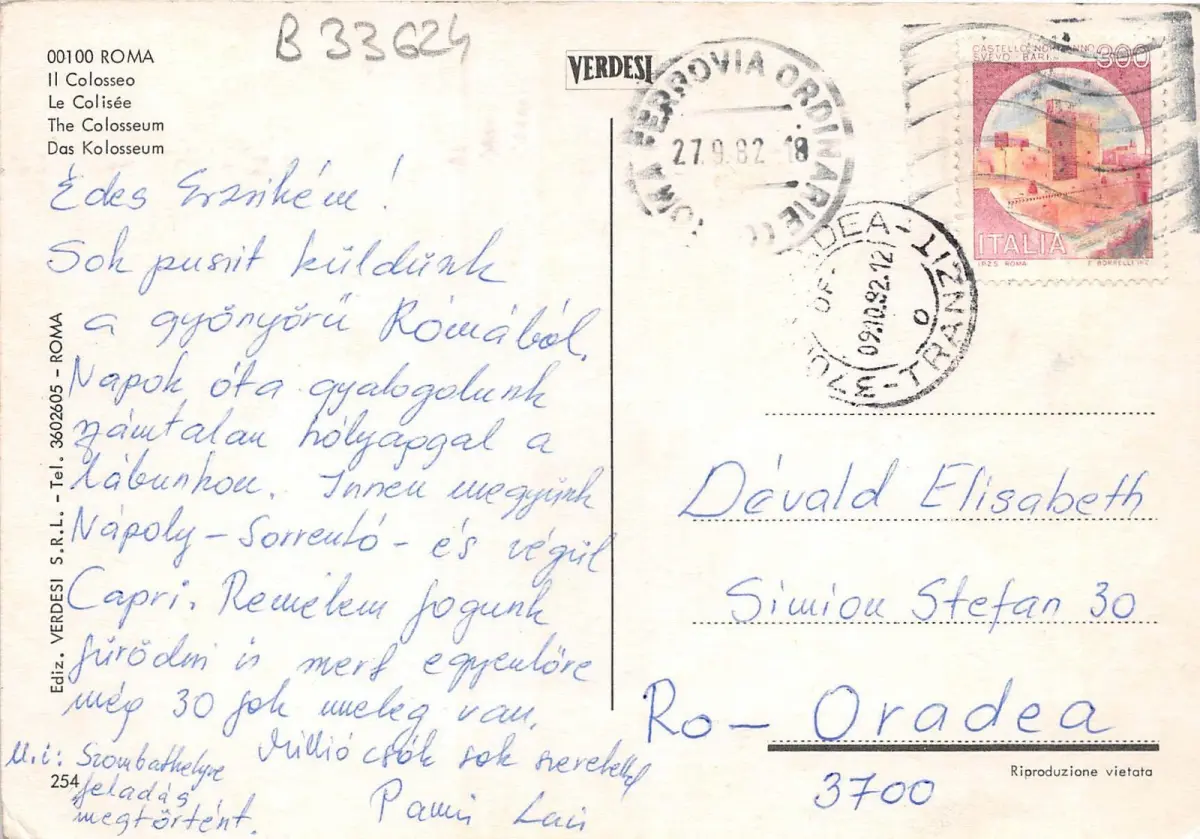 B 33624
00100 ROMA
Il Colosseo
Le Colisée
The Colosseum
Das Kolosseum
VERDESI
FERROVIA ORDINARIE
27.9.82 18
CASTELLO NORMANNO
SVEVO - BARI
300
ITALIA
I.P.Z.S. ROMA
ORADEA - TRANZIT
OF.
09.10.82.12
3700
Édes Erzsikém!
Sok puszit küldünk
a gyönyörű Rómából.
Napok óta gyalogolunk
számtalan hólyaggal a
lábunkon. Innen megyünk
Nápoly - Sorrentó - és végül
Capri. Remélem fogunk
fürödni is mert egyenlőre
még 30 fok meleg van.
Millió csók sok szeretettel
U.i: Szombathelyre
feladás
megtörtént.
Dávald Elisabeth
Simion Stefan 30
Ro - Oradea
3700
Riproduzione vietata
254
Ediz. VERDESI S.R.L. - Tel. 3602605 - ROMA